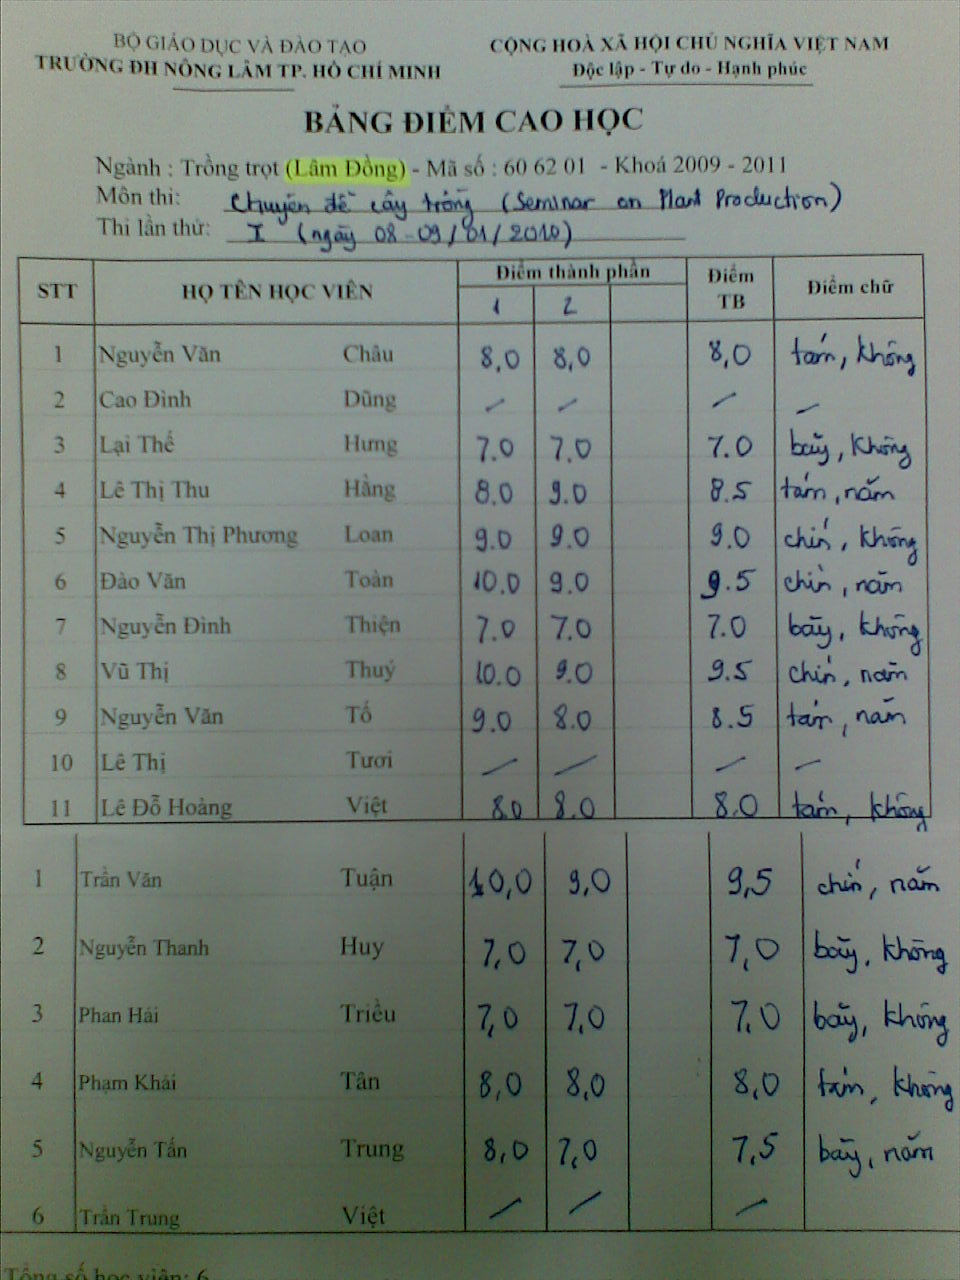 BỘ GIÁO DỤC VÀ ĐÀO TẠO CỘNG HOÀ XÃ HỘI CHỦ NGHĨA VIỆT NAM
TRƯỜNG ĐH NÔNG LÂM TP. HỒ CHÍ MINH Độc lập - Tự do - Hạnh phúc
BẢNG ĐIỂM CAO HỌC
Ngành : Trồng trọt (Lâm Đồng) - Mã số : 60 62 01 - Khoá 2009 - 2011
Môn thi: Chuyên đề cây trồng (Seminar on Plant Production)
Thi lần thứ: I (ngày 08-09/01/2010)
STT HỌ TÊN HỌC VIÊN Điểm thành phần Điểm TB Điểm chữ
1 2
1 Nguyễn Văn Châu 8,0 8,0 8,0 tám, không
2 Cao Đình Dũng / / / /
3 Lại Thế Hưng 7.0 7.0 7.0 bảy, không
4 Lê Thị Thu Hằng 8.0 9.0 8.5 tám, năm
5 Nguyễn Thị Phương Loan 9.0 9.0 9.0 chín, không
6 Đào Văn Toàn 10.0 9.0 9.5 chín, năm
7 Nguyễn Đình Thiện 7.0 7.0 7.0 bảy, không
8 Vũ Thị Thuý 10.0 9.0 9.5 chín, năm
9 Nguyễn Văn Tố 9.0 8.0 8.5 tám, năm
10 Lê Thị Tươi / / / /
11 Lê Đỗ Hoàng Việt 8.0 8.0 8.0 tám, không
1 Trần Văn Tuận 10,0 9,0 9,5 chín, năm
2 Nguyễn Thanh Huy 7,0 7,0 7,0 bảy, không
3 Phan Hải Triều 7,0 7,0 7,0 bảy, không
4 Phạm Khải Tân 8,0 8,0 8,0 tám, không
5 Nguyễn Tấn Trung 8,0 7,0 7,5 bảy, năm
6 Trần Trung Việt / / /
Tổng số học viên: 6